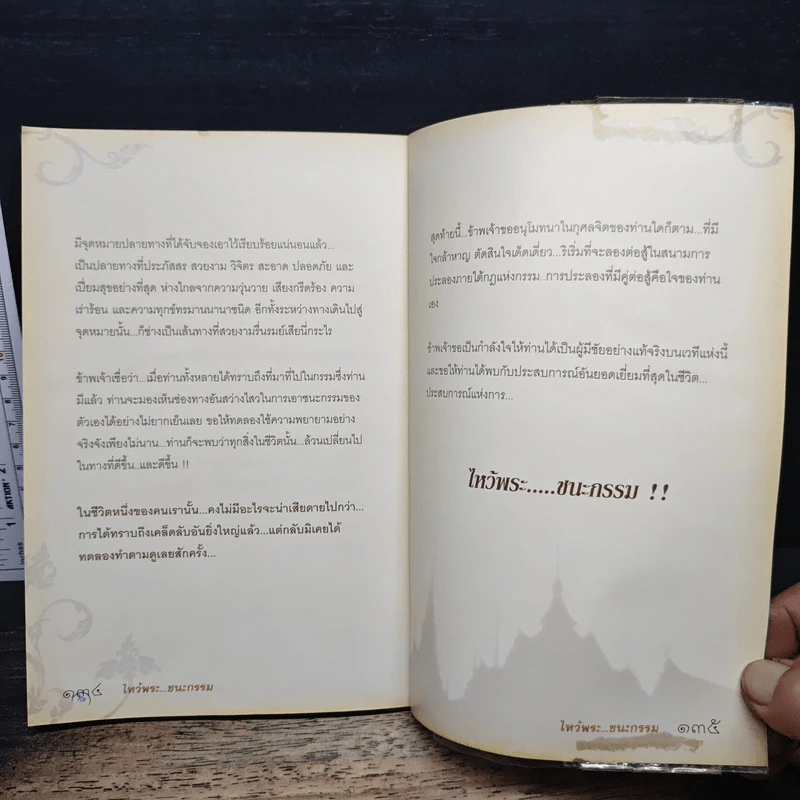 มีจุดหมายปลายทางที่ได้จับจองเอาไว้เรียบร้อยแน่นอนแล้ว...
เป็นปลายทางที่ประภัสสร สวยงาม วิจิตร สะอาด ปลอดภัย และ
เปี่ยมสุขอย่างที่สุด ห่างไกลจากความวุ่นวาย เสียงกรีดร้อง ความ
เร่าร้อน และความทุกข์ทรมานนานาชนิด อีกทั้งระหว่างทางเดินไปสู่
จุดหมายนั้น...ก็ช่างเป็นเส้นทางที่สวยงามรื่นรมย์เสียนี่กระไร
ข้าพเจ้าเชื่อว่า...เมื่อท่านทั้งหลายได้ทราบถึงที่มาที่ไปในกรรมซึ่งท่าน
มีแล้ว ท่านจะมองเห็นช่องทางอันสว่างไสวในการเอาชนะกรรมของ
ตัวเองได้อย่างไม่ยากเย็นเลย ขอให้ทดลองใช้ความพยายามอย่าง
จริงจังเพียงไม่นาน...ท่านก็จะพบว่าทุกสิ่งในชีวิตนั้น...ล้วนเปลี่ยนไป
ในทางที่ดีขึ้น..และดีขึ้น !!
ในชีวิตหนึ่งของคนเรานั้น...คงไม่มีอะไรจะน่าเสียดายไปกว่า...
การได้ทราบถึงเคล็ดลับอันยิ่งใหญ่แล้ว...แต่กลับมิเคยได้
ทดลองทำตามดูเลยสักครั้ง...
๑๓๔ ไหว้พระ...ชนะกรรม
สุดท้ายนี้...ข้าพเจ้าขออนุโมทนาในกุศลจิตของท่านใดก็ตาม...ที่มี
ใจกล้าหาญ ตัดสินใจเด็ดเดี่ยว...ริเริ่มที่จะลองต่อสู้ในสนามการ
ประลองภายใต้กฎแห่งกรรม...การประลองที่มีคู่ต่อสู้คือใจของท่าน
เอง
ข้าพเจ้าขอเป็นกำลังใจให้ท่านได้เป็นผู้มีชัยอย่างแท้จริงบนเวทีแห่งนี้
และขอให้ท่านได้พบกับประสบการณ์อันยอดเยี่ยมที่สุดในชีวิต...
ประสบการณ์แห่งการ...
ไหว้พระ.....ชนะกรรม !!
ไหว้พระ...ชนะกรรม ๑๓๕